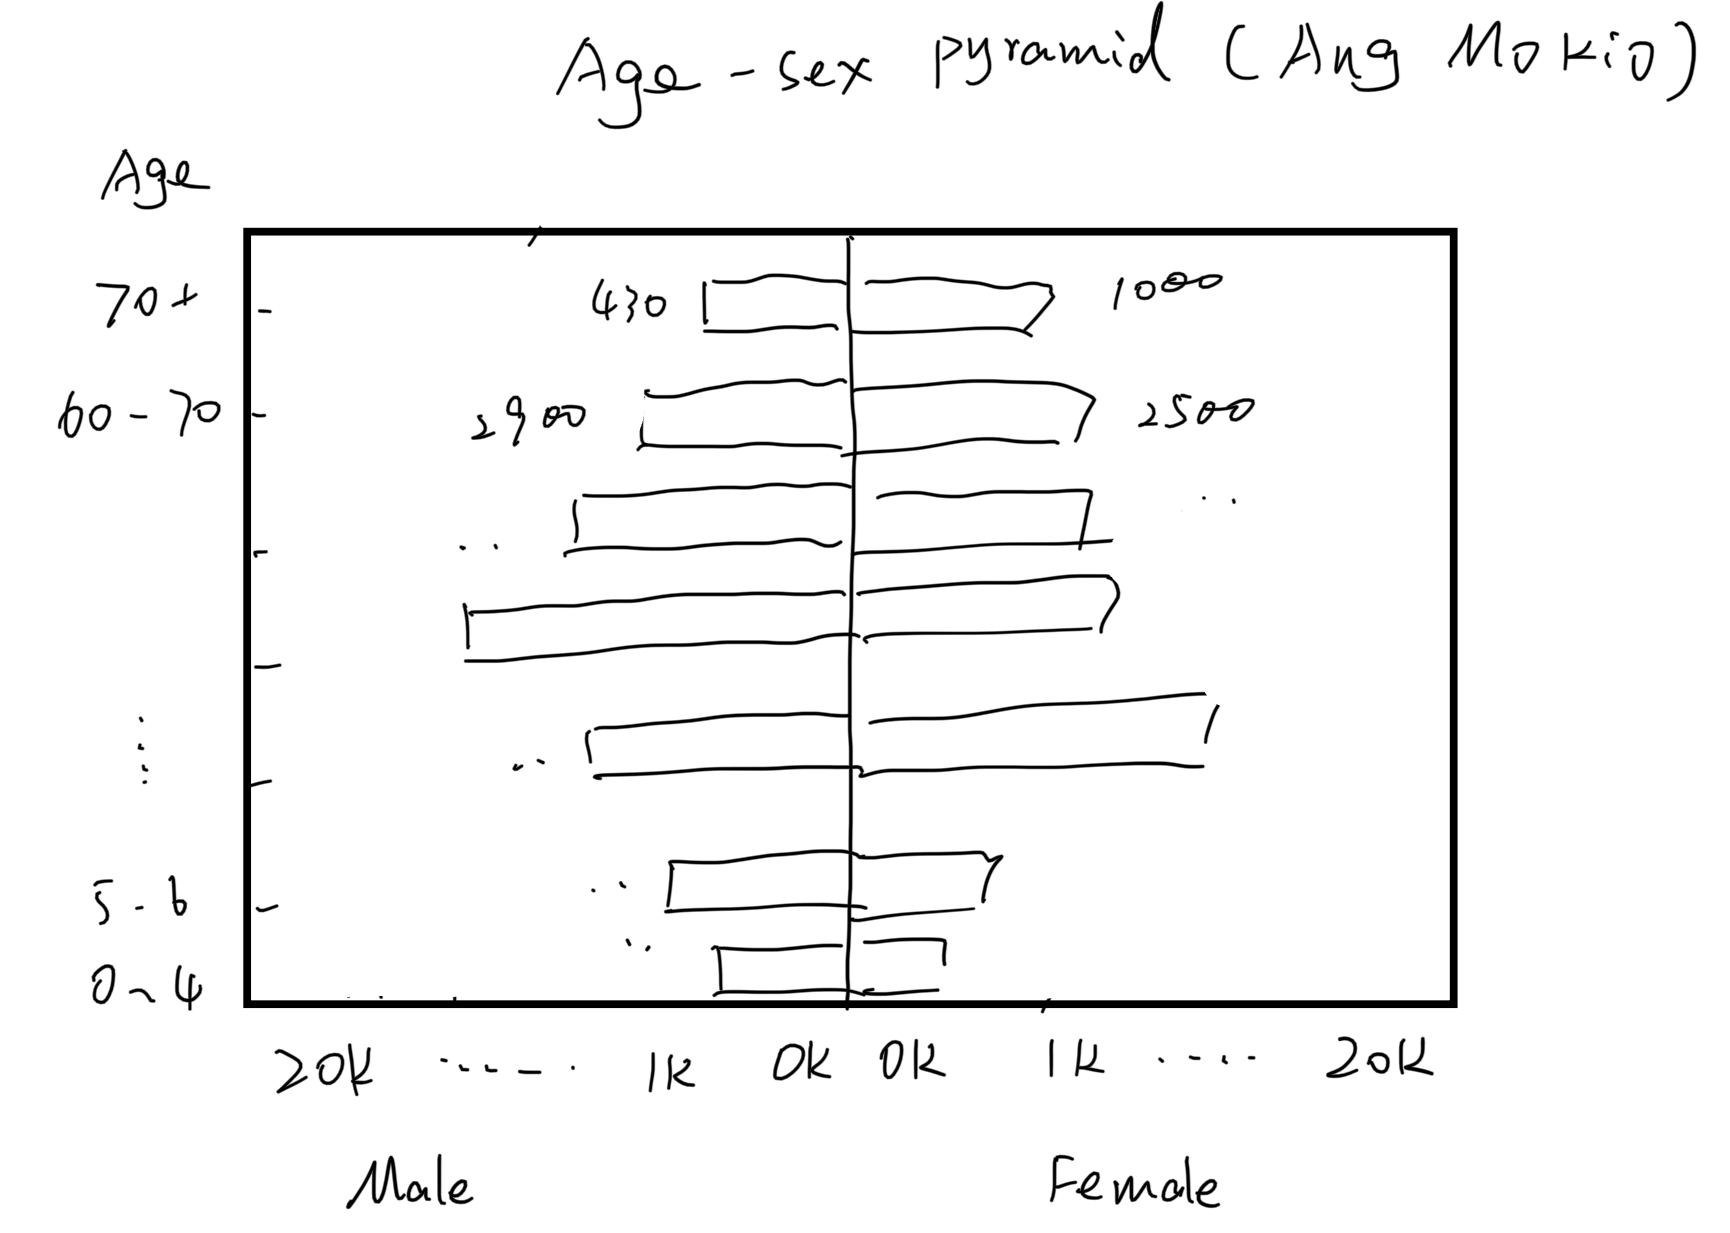 Age-sex pyramid (Ang Mo Kio)
Age
70+ 430 1000
60-70 2900 2500
.. ..
⋮ ..
5-6 ..
0~4 ..
20K ...... 1K 0K 0K 1K .... 20K
Male Female